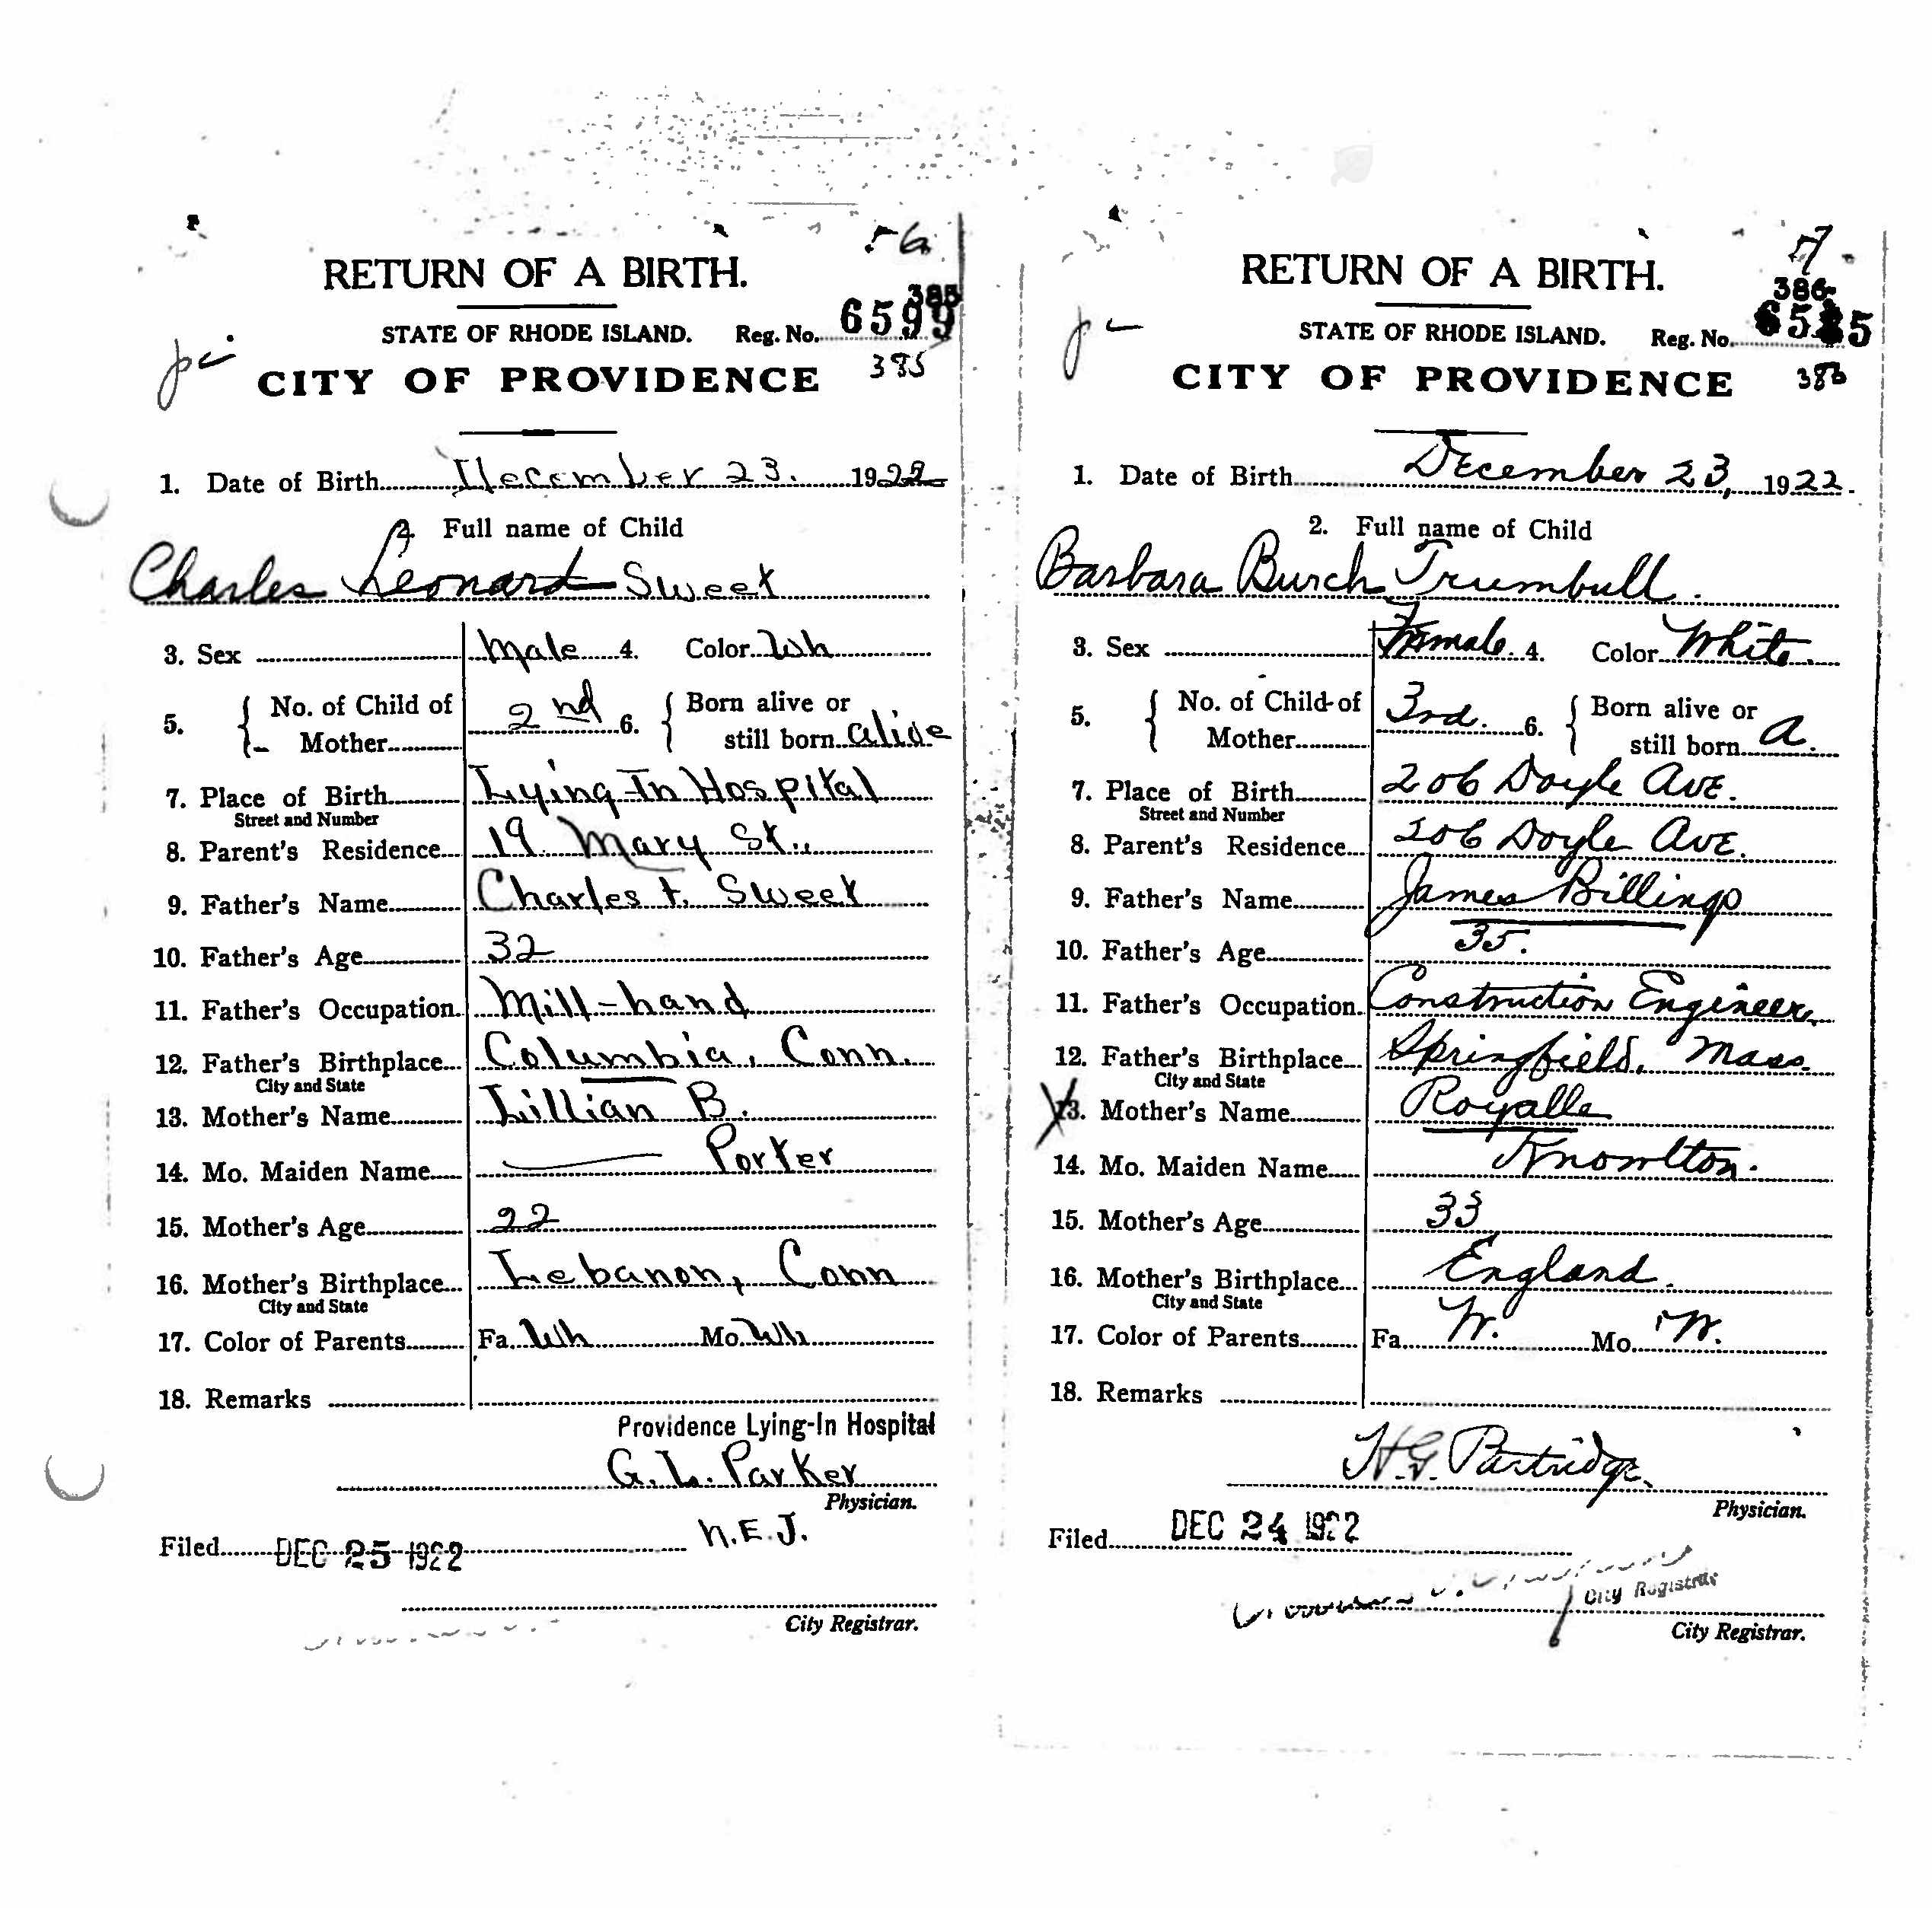 56
RETURN OF A BIRTH.
385
STATE OF RHODE ISLAND. Reg. No. 6599
385
CITY OF PROVIDENCE
1. Date of Birth December 23. 1922
2. Full name of Child
Charles Leonard Sweet
3. Sex Male 4. Color Wh
5. { No. of Child of Mother 2nd 6. { Born alive or still born alive
7. Place of Birth Lying-In Hospital
Street and Number
8. Parent's Residence 19 Mary St.,
9. Father's Name Charles F. Sweet
10. Father's Age 32
11. Father's Occupation Mill-hand
12. Father's Birthplace Columbia, Conn.
City and State
13. Mother's Name Lillian B.
14. Mo. Maiden Name Porter
15. Mother's Age 22
16. Mother's Birthplace Lebanon, Conn
City and State
17. Color of Parents Fa. Wh Mo. Wh
18. Remarks
Providence Lying-In Hospital
G. L. Parker
Physician.
N.E.J.
Filed DEC 25 1922
City Registrar.
RETURN OF A BIRTH.
386
STATE OF RHODE ISLAND. Reg. No.
CITY OF PROVIDENCE
386
1. Date of Birth December 23, 1922.
2. Full name of Child
Barbara Burch Trumbull.
3. Sex Female. 4. Color White.
5. { No. of Child of Mother 3rd. 6. { Born alive or still born a.
7. Place of Birth 206 Doyle Ave.
Street and Number
8. Parent's Residence 206 Doyle Ave.
9. Father's Name James Billings
10. Father's Age 35.
11. Father's Occupation Construction Engineer.
12. Father's Birthplace Springfield, Mass.
City and State
13. Mother's Name Royalle
14. Mo. Maiden Name Knowlton.
15. Mother's Age 33
16. Mother's Birthplace England.
City and State
17. Color of Parents Fa. W. Mo. W.
18. Remarks
H.G. Partridge.
Physician.
Filed DEC 24 1922
City Registrar
City Registrar.